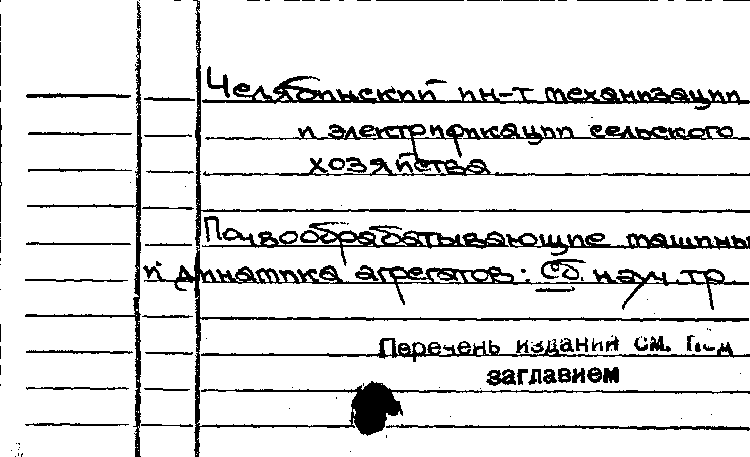 Челябинский ин-т механизации
и электрификации сельского
хозяйства.
Почвообрабатывающие машины
и динамика агрегатов: Сб. науч. тр
Перечень изданий см. под
заглавием